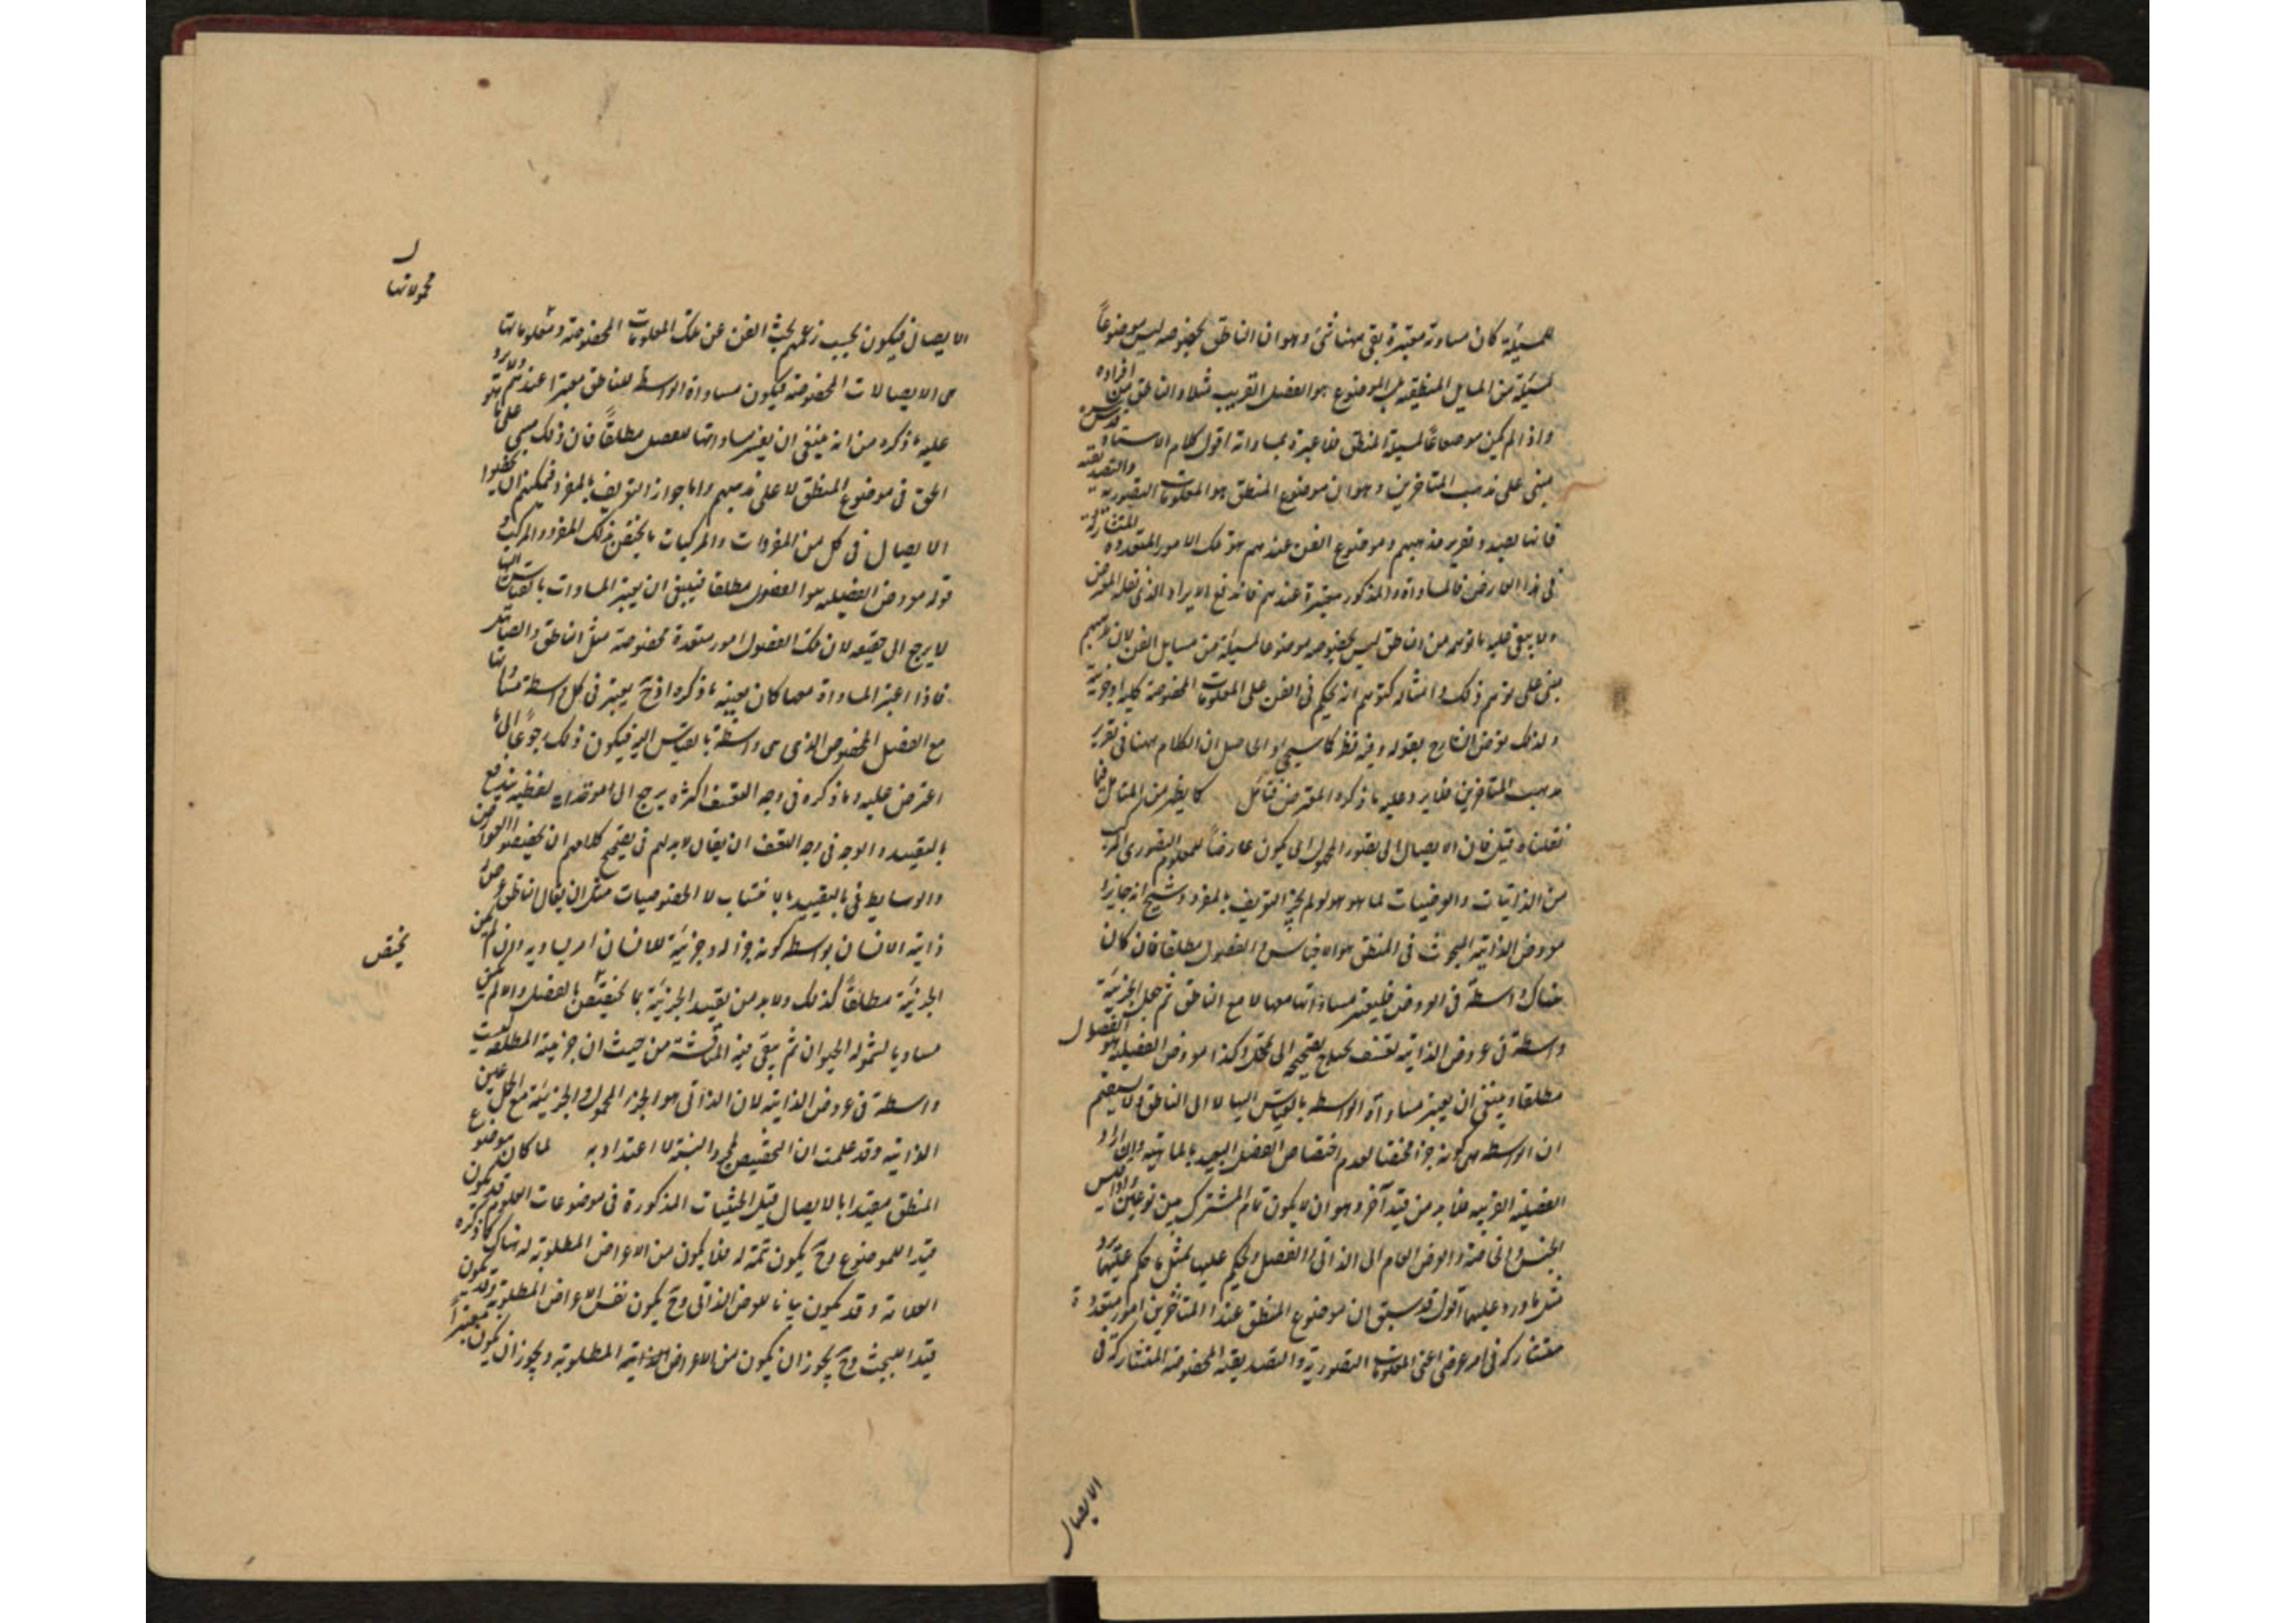 للمسئلة كان مساوته معتبرة بقى ههنا شئ وهو ان الناطق بخصوصه ليس موضوعاً
لمسئلة من المسايل المنطقية بل الموضوع هو الفصل القريب مثلا والناطق من افراده
واذا لم يكن موضوعاً لمسئلة المنطق فلا عبرة بمساواته اقول كلام الاستاد قدس سره
مبنى على مذهب المتاخرين وهو ان موضوع المنطق هو المعلومات التصورية والتصديقية
فانا بصدد تقرير مذهبهم وموضوع الفن عندهم هو تلك الامور المتعددة المتشاركة
فى هذا العارض فالمساواة المذكور معتبرة عندهم فاندفع الايراد الذى نقله المعترض
ولا يبقى عليه ما توهم من ان الناطق ليس بخصوصه موضوعا لمسئلة من مسايل الفن لان مذهبهم
مبنى على توهم ذلك وامثاله كتوهم انه يحكم فى الفن على المعلومات المخصوصة كلية او جزئية
ولذلك تعرض الشارح بقوله وفيه نظر كما سيجئ والحاصل ان الكلام ههنا فى تقرير
مذهب المتاخرين فلا يرد عليه ما ذكره المعترض فتامل كما يظهر من المتامل فيما
نقلناه قيل فان الايصال الى تصور المجهول انما يكون عارضاً للمعلوم التصورى المركب
من الذاتيات والعرضيات لما هو هو لو لم يجز التعريف بالمفرد وسيجئ انه جايز
معروض الذاتية المبحوث فى المنطق هو الاجناس والفصول مطلقا فان كان
هناك واسطة فى العروض فليعتبر مساواتها معها لا مع الناطق ثم جعل الجزئية
واسطة فى عروض الذاتية تعسف يحتاج تصحيحه الى تمحل وكذا معروض الفصلية هو الفصول
مطلقا وينبغى ان يعتبر مساواة الواسطة بالقياس اليها لا الى الناطق ولا يستقيم
ان الواسطة هى كونه جزءا مختصا لعدم اختصاص الفصل البعيد بالماهية وان اراد
الفصلية القريبة فلا بد من قيد آخر وهو ان لا يكون تمام المشترك بين نوعين وقس
الجنس والخاصة والعرض العام الى الذاتى والفصل ولحكم عليها بمثل ما حكم عليهما يرد
مثل ما ورد عليهما اقول قد سبق ان موضوع المنطق عند المتاخرين امور متعددة
متشاركة فى امر عرضى اعنى المعلومات التصورية والتصديقية المخصوصة المتشاركة فى
الايصال
الايصال فيكون بحسب زعمهم بحث الفن عن تلك المعلومات المخصوصة و
محمولاتها
هى الايصالات المخصوصة فيكون مساواة الواسطة للناطق معتبرا عندهم ولا يرد
عليه ما ذكره من انه ينبغى ان يعتبر مساواتها للفصل مطلقاً فان ذلك مبنى على ما هو
الحق فى موضوع المنطق لا على مذهبهم واما جواز التعريف بالمفرد فيمكنهم ان يجعلوا
الايصال فى كل من المفردات والمركبات ما يختص بذلك المفرد والمركب و
قوله معروض الفصلية هو الفصول مطلقا فينبغى ان يعتبر المساوات بالقياس اليها
لا يرجع الى حقيقة لان تلك الفصول امور متعددة مخصوصة مثل الناطق والصاهل
فاذا اعتبر المساواة معها كان بعينه ما ذكره اذ ح يعتبر فى كل واسطة مساواتها
مع الفصل المخصوص الذى هى واسطة بالقياس اليه فيكون ذلك رجوعاً الى ما
اعترض عليه وما ذكره فى وجه التعسف اكثره يرجع الى مواخذات لفظية يندفع
بالتقييد والوجه فى وجه التعسف ان يقال لا بد لهم فى تصحيح كلامهم ان يخصصوا العوارض
والوسايط فى بالتقييد بالانتساب لا الخصوصيات مثل ان يقال الناطق
ذاتية الانسان بواسطة كونه جزءا له وجزئية للانسان امر يساويه وان لم يكن
يختص
الجزئية مطلقاً كذلك ولا بد من تقييد الجزئية بما يختص بالفصل والا لم يكن
مساويا لشموله الحيوان ثم يبقى فيه المناقشة من حيث ان جزئية المطلقة ليست
واسطة فى عروض الذاتية لان الذاتى هو الجزء المحمول والجزئية مع الحمل عين
الذاتية وقد علمت ان التخصيص لمجرد النسبة لا اعتداد به لما كان موضوع
المنطق مقيدا بالايصال قيل الحيثيات المذكورة فى موضوعات العلوم قد يكون
قيدا للموضوع وح يكون تتمة له فلا يكون من الاعراض المطلوبة له هناك كما ذكره
العلامة وقد يكون بيانا للعرض الذاتى وح يكون نفس الاعراض المطلوبة وقد يكون
قيدا للبحث وح يجوز ان يكون من الاعراض الذاتية المطلوبة ويجوز ان يكون معتبراً